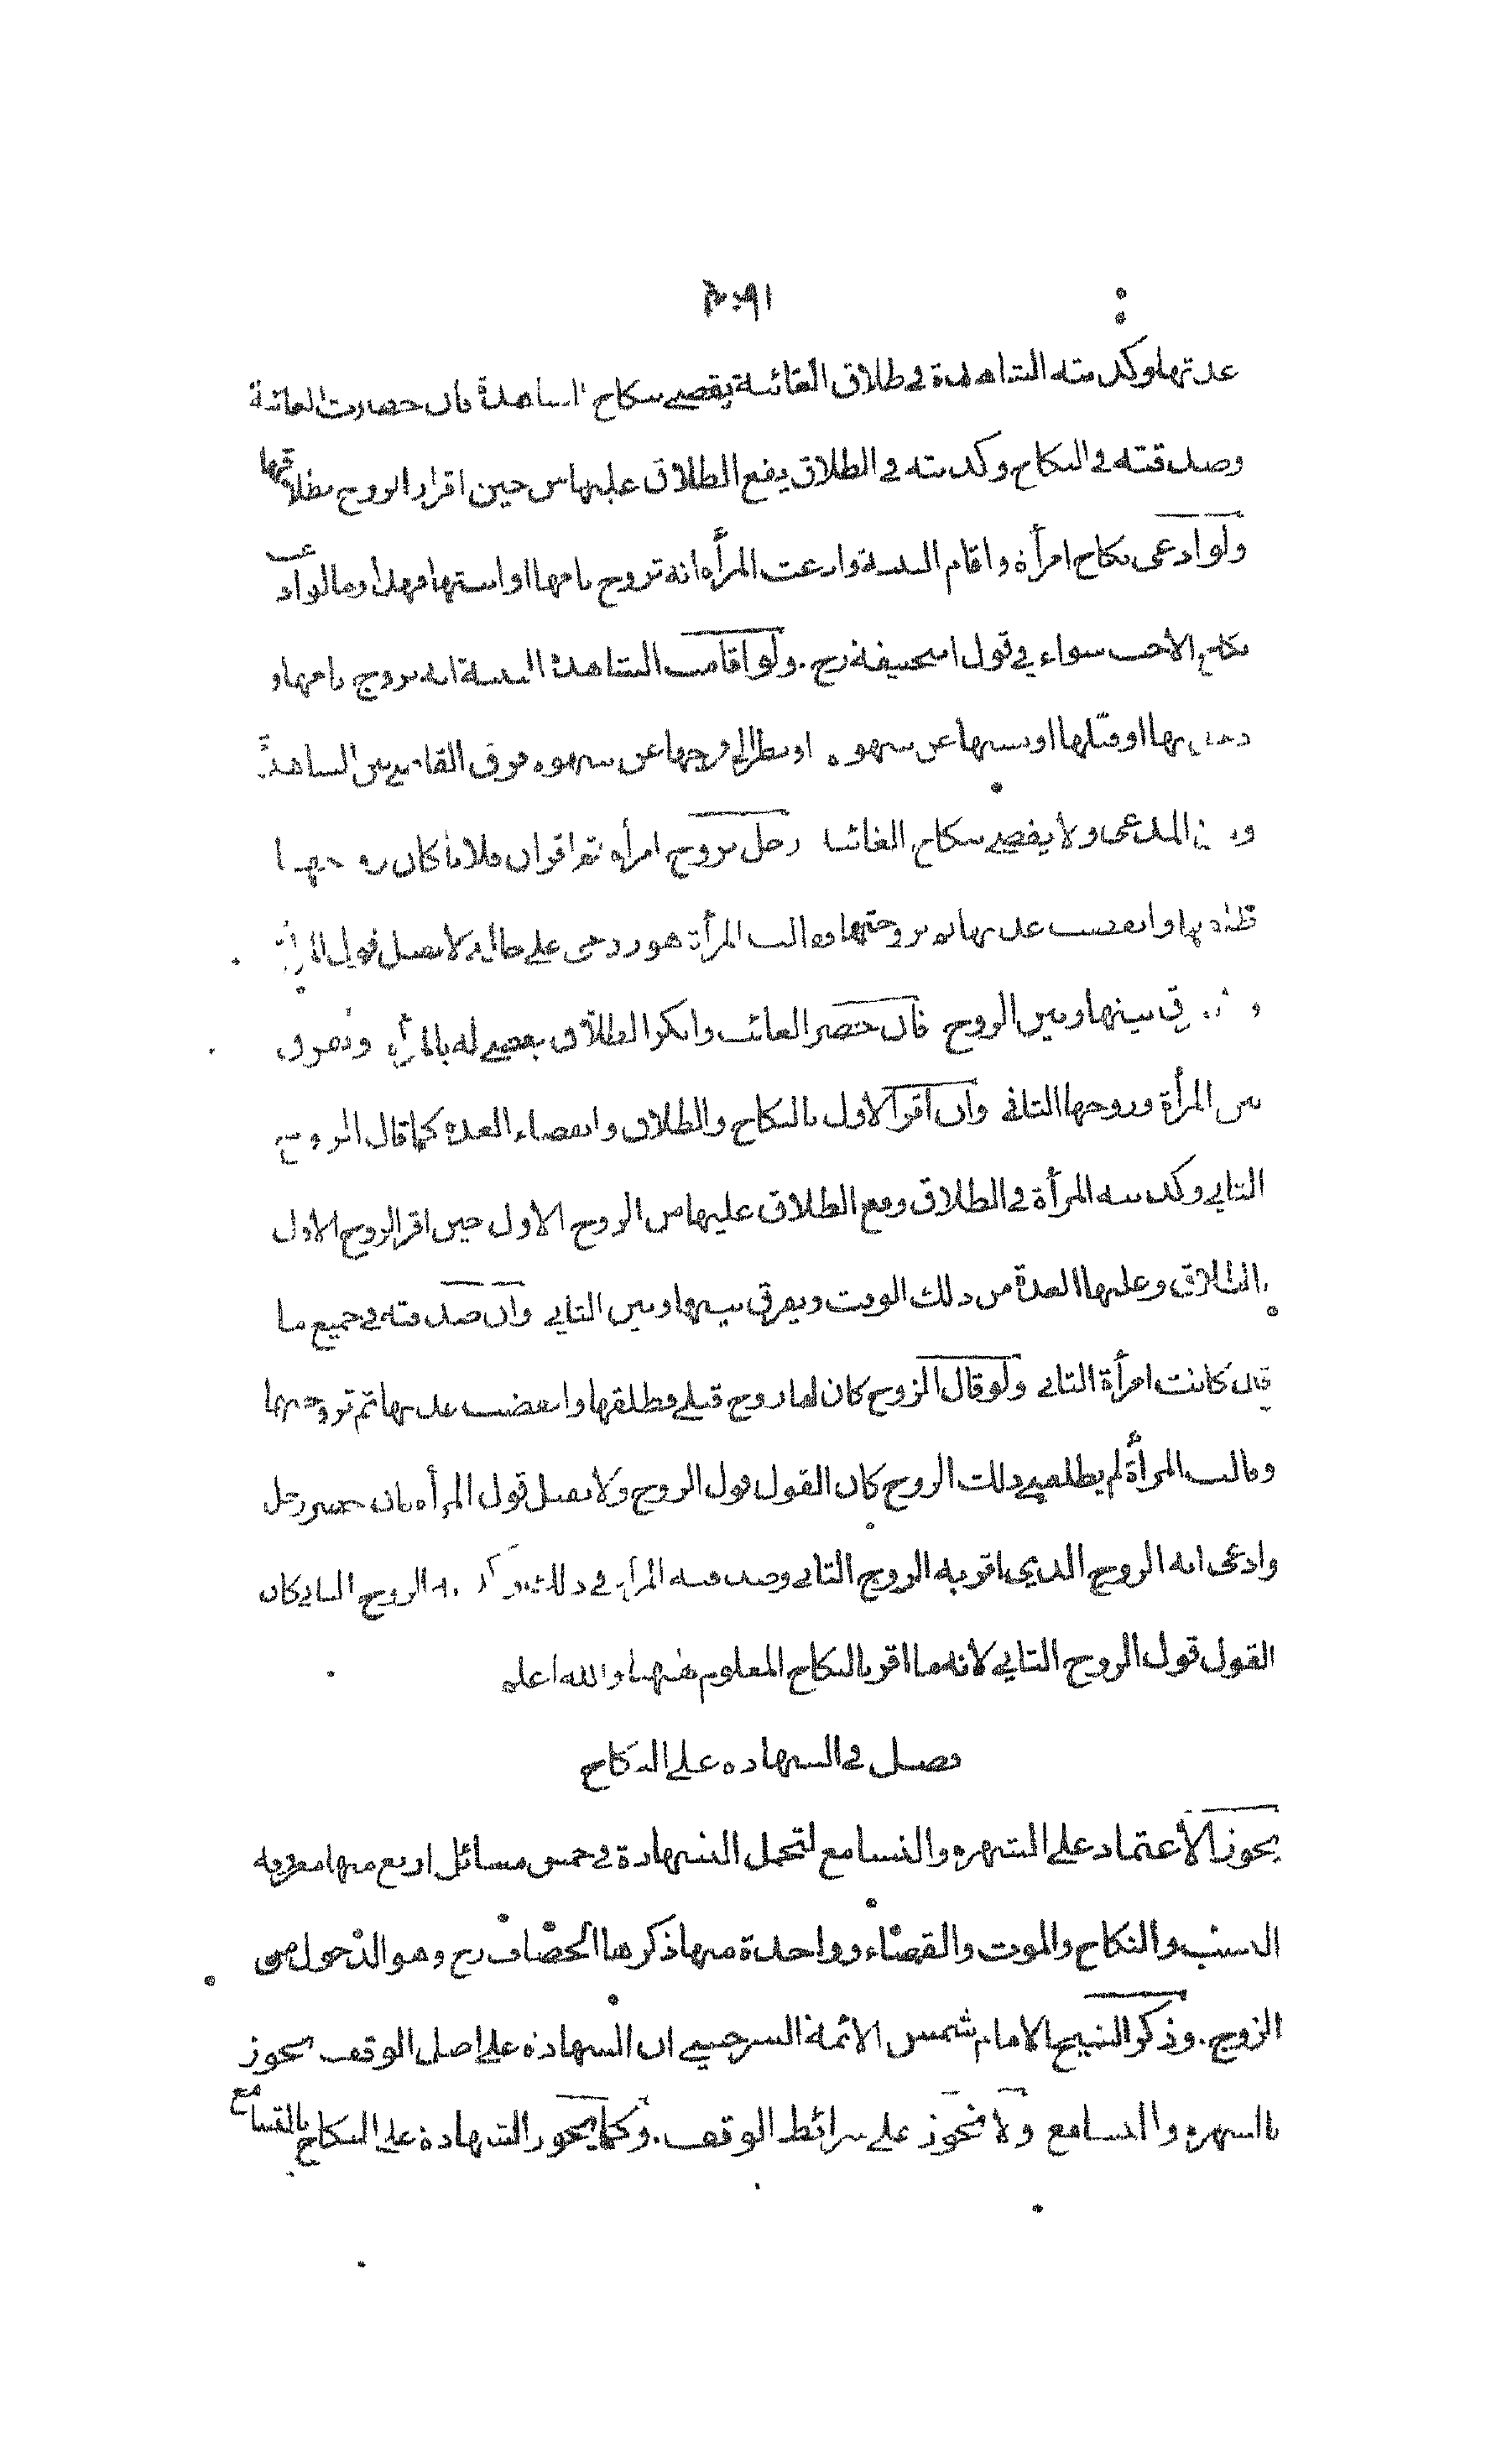 عدتها وكذبته الشاهدة في طلاق الغائبة يقضي بنكاح الشاهدة فان حضرت الغائبة
وصدقته في النكاح وكذبته في الطلاق يقع الطلاق عليها من حين اقرار الزوج بطلاقها
ولو ادعى نكاح امرأة واقام البينة وادعت المرأة انه تزوج بامها او ابنتها فهذا وما لو ادعى
نكاح الاخت سواء في قول ابي حنيفة رح. ولو اقامت الشاهدة البينة انه تزوج بامها و
دخل بها او قبلها او مسها عن شهوة او نظر الى فرجها عن شهوة فرق القاضي بين الشاهدة
وبين المدعي ولا يقضي بنكاح الغائبة رجل تزوج امرأة ثم اقر ان فلانا كان زوجها
طلقها وانقضت عدتها ثم تزوجتها وقالت المرأة هو زوجي على حاله لا يقبل قول المرأة
ولا يفرق بينها وبين الزوج فان حضر الغائب وانكر الطلاق يقضي له بالمرأة ويفرق
بين المرأة وزوجها الثاني وان اقر الاول بالنكاح والطلاق وانقضاء العدة كما قال الزوج
الثاني وكذبته المرأة في الطلاق وقع الطلاق عليها من الزوج الاول حين اقر الزوج الاول
بالطلاق وعليها العدة من ذلك الوقت ويفرق بينها وبين الثاني وان صدقته في جميع ما
قال كانت امرأة الثاني ولو قال الزوج كان لها زوج قبلي وطلقها وانقضت عدتها ثم تزوجتها
وقالت المرأة لم يطلقني ذلك الزوج كان القول قول الزوج ولا يقبل قول المرأة فان حضر رجل
وادعى انه الزوج الذي اقر به الزوج الثاني وصدقته المرأة في ذلك الزوج الثاني كان
القول قول الزوج الثاني لانه ما اقر بالنكاح المعلوم والله اعلم
فصل في الشهادة على النكاح
يجوز الأعتماد على الشهرة والتسامع لتحمل الشهادة في خمس مسائل اربع منها معروفة
النسب والنكاح والموت والقضاء وواحدة منها ذكرها الخصاف رح وهو الدخول من
الزوج. وذكر الشيخ الامام شمس الائمة السرخسي ان الشهادة على اصل الوقف يجوز
بالشهرة والتسامع ولا تجوز على شرائط الوقف. وكما يجوز الشهادة على النكاح بالتسامع